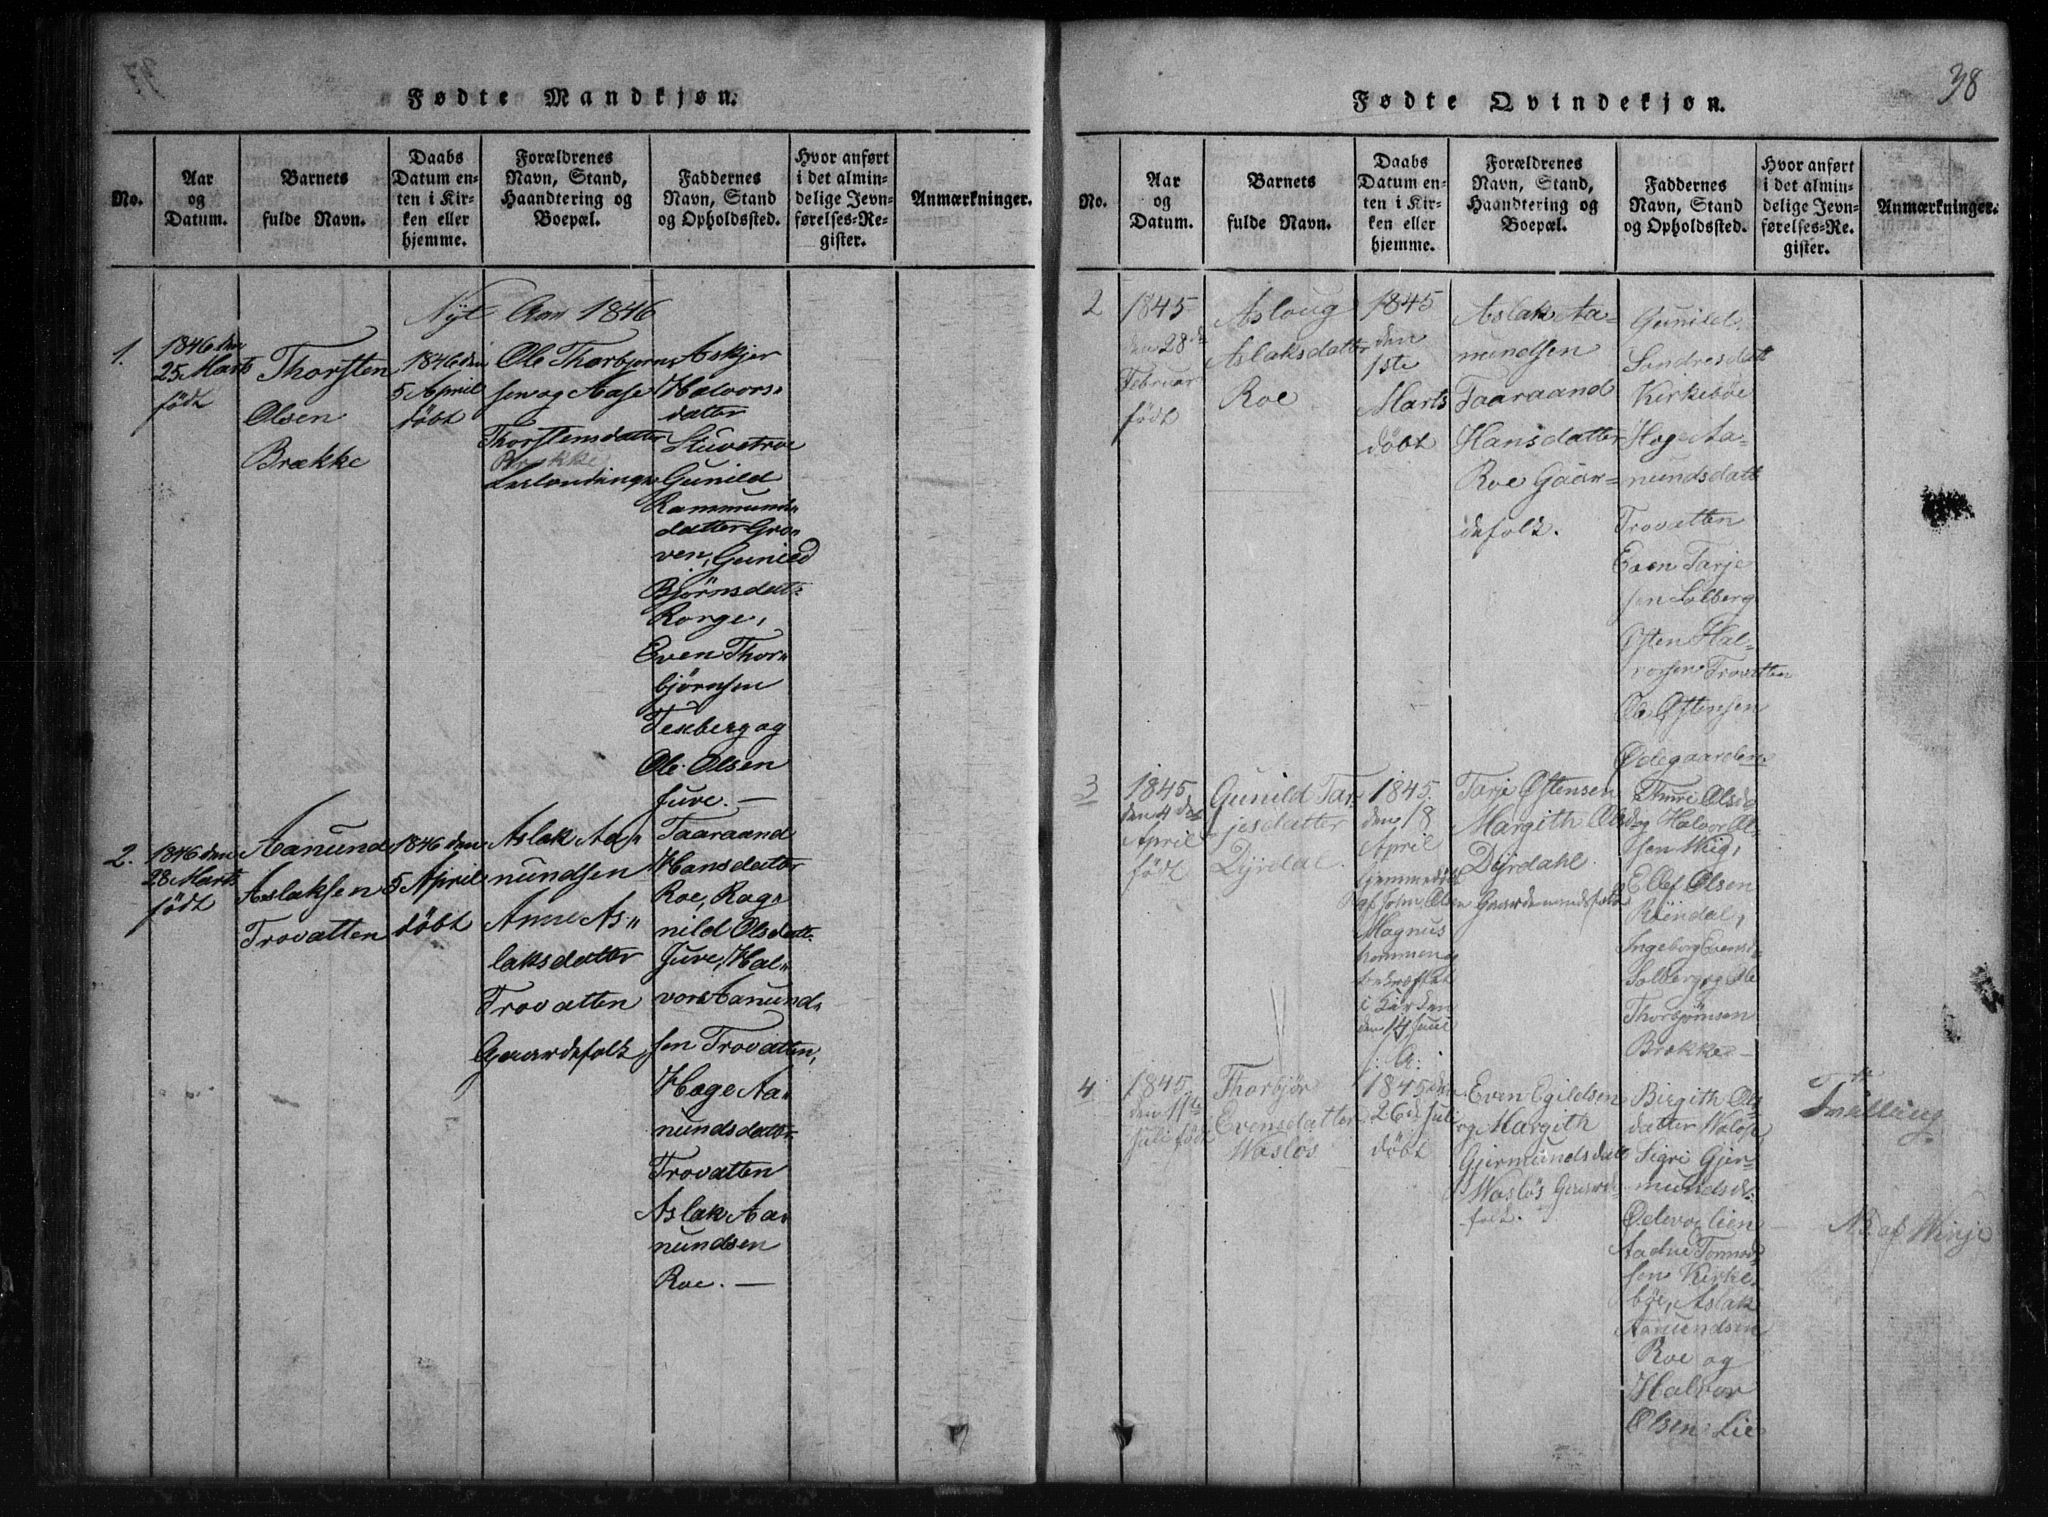 38
Fødte Mandkjøn.
No.
Aar
og
Datum.
Barnets
fulde Navn.
Daabs
Datum en-
ten i Kir-
ken eller
hjemme.
Forældrenes
Navn, Stand,
Haandtering og
Boepæl.
Faddernes
Navn, Stand
og Opholdssted.
Hvor anført
i det almin-
delige Jevn-
førelses-Re-
gister.
Anmærkninger.
Nyt Aar 1846
1.
1846 den
25 Marts
födt
Thorsten
Olsen
Brække
1846 den
5 April
döbt
Ole Thorbjørn-
sen og Aase
Thorstensdatter
Brække
Askjer
Halvors-
datter
Stuvetroe
Gunild
Rammunds-
datter Gro-
ven, Gunild
Björnsdat-
Rorge,
Even Thor-
bjørnsen
Texeberg og
Ole Olsen
Jure. —
2.
1846 den
28 Marts
födt
Aanund
Aslaksen
Trovatten
1846 den
5 April
döbt
Aslak Aa-
nundsen
Anne As-
laksdatter
Trovatten
Gaardefolk
Taaraand
Hansdatter
Roe, Rag-
nild Olsdatt-
Jure, Hal-
vor Aanund-
sen Trovatten,
Hæge Aa-
nundsdatter
Trovatten
Aslak Aa-
nundsen
Roe. —
Fødte Qvindekjøn.
No.
Aar
og
Datum.
Barnets
fulde Navn.
Daabs
Datum en-
ten i Kir-
ken eller
hjemme.
Forældrenes
Navn, Stand,
Haandtering og
Boepæl.
Faddernes
Navn, Stand
og Opholdssted.
Hvor anført
i det almin-
delige Jevn-
førelses-Re-
gister.
Anmærkninger.
2
1845
den 28de
Februar
födt
Asloug
Aslaksdatter
Roe
1845
den
1ste
Marts
döbt
Aslak Aa-
nundsen
Taaraand
Hansdatter
Roe Gaar-
defolk.
Gunild
Sindresdatt
Kirkebøe
Hæge Aa-
nundsdatt
Trovatten
Even Tarje
sen Solberg
Østen Hal-
vorsen Trovatten
Ole Østensen
Ødegaarden
3
1845
den 4de
April
födt
Gunild Tar-
jesdatter
Dyrdal
1845
den 18
April
hjemmedöbt
af John Olsen
Magnus
kommen og
bekræftet
i Kirken
den 14 Juni
Tarje Østensen
Margith Olsd
Dyrdahl
Gaardemandsfolk
Thuri Olsd
og Halvor Ol-
sen Wig,
Ellef Olsen
Röindal,
Ingeborg Evensd
Solberg og Ole
Thorbjörnsen
Brække —
4
1845
den 11te
Juli födt
Thorbjør
Evensdatter
Wasløs
1845 den
26de Juli
döbt
Even Egildsen
og Margith
Gjermundsdatt
Wasløs Gaarde-
folk.
Birgith Ols
datter Waløse
Sigri Gjer-
mundsd-
Aadne Tonnes
sen Kirke-
bøe, Aslak
Aanundsen
Roe og
Halvor
Olsen Lie
Tvilling
No af Winje